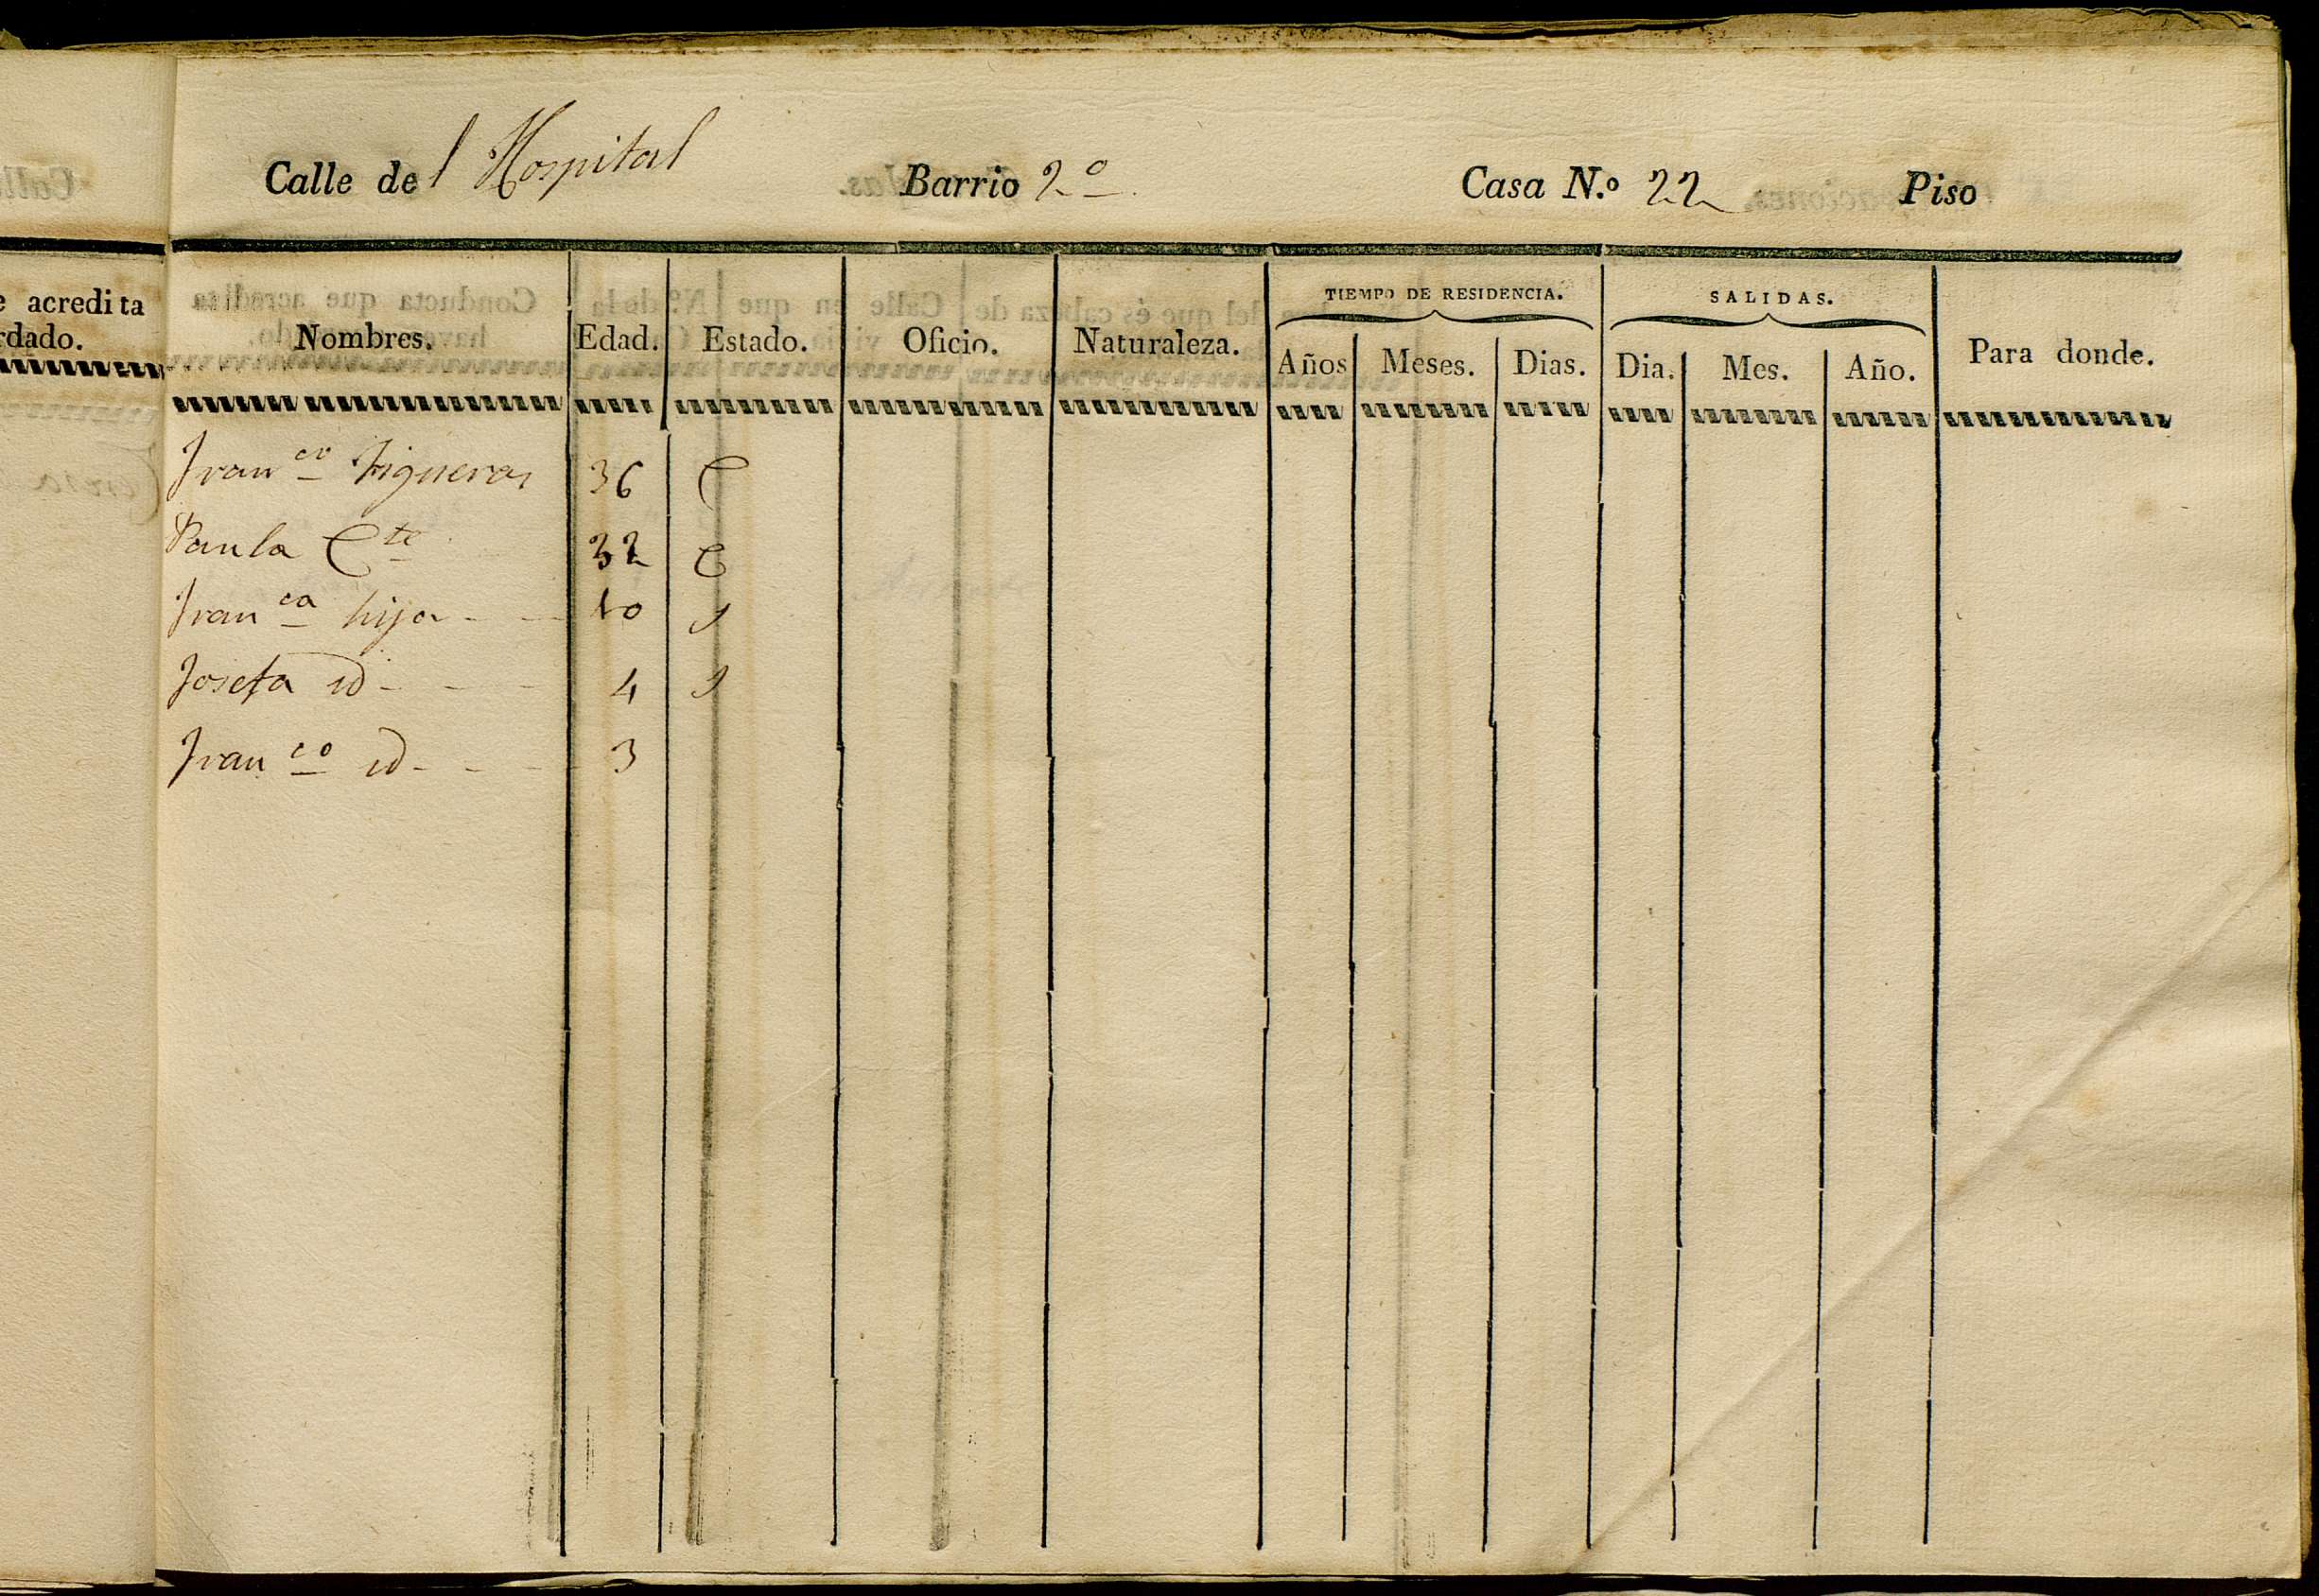 Calle del Hospital Barrio 2º Casa N.º 22 Piso
e acredita
rdado.
TIEMPO DE RESIDENCIA. SALIDAS.
Nombres. Edad. Estado. Oficio. Naturaleza. Años Meses. Dias. Dia. Mes. Año. Para donde.
Franco Figueras 36 C
Paula Cte 32 C
Franca hija - - 10 S
Josefa id - - - 4 S
Franco id - - - 3